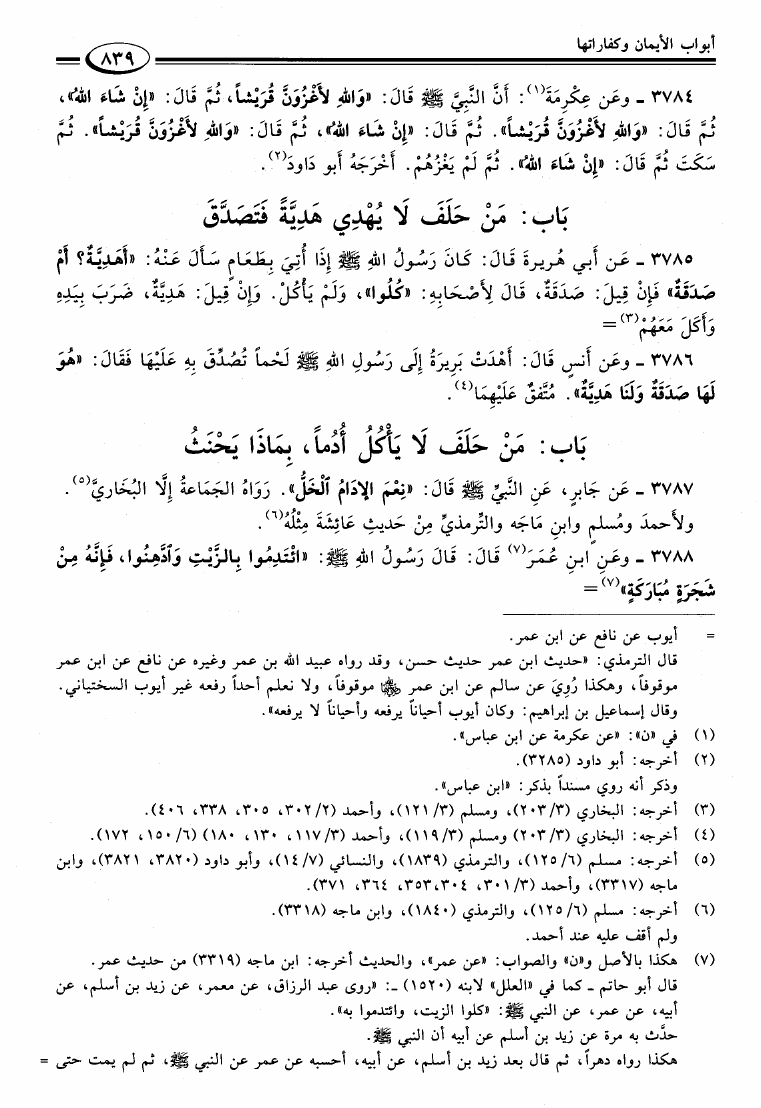 أبواب الأيمان وكفاراتها
٨٣٩
٣٧٨٤ ـ وعَن عِكْرِمَةَ(١): أَنَّ النَّبِيَّ ﷺ قَالَ: «وَاللهِ لأَغْزُوَنَّ قُرَيْشاً، ثُمَّ قَالَ: «إِنْ شَاءَ اللهُ»،
ثُمَّ قَالَ: «وَاللهِ لأَغْزُوَنَّ قُرَيْشاً». ثُمَّ قَالَ: «إِنْ شَاءَ اللهُ»، ثُمَّ قَالَ: «وَاللهِ لأَغْزُوَنَّ قُرَيْشاً». ثُمَّ
سَكَتَ ثُمَّ قَالَ: «إِنْ شَاءَ اللهُ». ثُمَّ لَمْ يَغْزُهُمْ. أَخْرَجَهُ أبو دَاودَ(٢).
بَاب: مَنْ حَلَفَ لَا يُهْدِي هَدِيَّةً فَتَصَدَّقَ
٣٧٨٥ ـ عَن أبي هُريرةَ قَالَ: كَانَ رَسُولُ اللهِ ﷺ إِذَا أُتِيَ بِطَعَامٍ سَأَلَ عَنْهُ: «أَهَدِيَّةٌ؟ أَمْ
صَدَقَةٌ» فَإِنْ قِيلَ: صَدَقَةٌ، قَالَ لِأَصْحَابِهِ: «كُلُوا»، وَلَمْ يَأْكُلْ. وَإِنْ قِيلَ: هَدِيَّةٌ، ضَرَبَ بِيَدِهِ
وَأَكَلَ مَعَهُمْ(٣)=
٣٧٨٦ ـ وعَن أنسٍ قَالَ: أَهْدَتْ بَرِيرَةُ إِلَى رَسُولِ اللهِ ﷺ لَحْماً تُصُدِّقَ بِهِ عَلَيْهَا فَقَالَ: «هُوَ
لَهَا صَدَقَةٌ وَلَنَا هَدِيَّةٌ». مُتَّفَقٌ عَلَيْهِمَا(٤).
بَاب: مَنْ حَلَفَ لَا يَأْكُلُ أُدُماً، بِمَاذَا يَحْنَثُ
٣٧٨٧ ـ عَن جَابرٍ، عَنِ النَّبِيِّ ﷺ قَالَ: «نِعْمَ الإِدَامُ الْخَلُّ». رَوَاهُ الجَمَاعةُ إلَّا البُخَاريَّ(٥).
ولأَحمدَ ومُسلمٍ وابنِ مَاجَه والتِّرمذيِّ مِنْ حَديثِ عَائِشَةَ مِثْلُهُ(٦).
٣٧٨٨ ـ وعَنِ ابنِ عُمَرَ(٧) قَالَ: قَالَ رَسُولُ اللهِ ﷺ: «ائْتَدِمُوا بِالزَّيْتِ وَادَّهِنُوا، فَإِنَّهُ مِنْ
شَجَرَةٍ مُبَارَكَةٍ»(٧)=
= أيوب عن نافع عن ابن عمر.
قال الترمذي: «حديث ابن عمر حديث حسن، وقد رواه عبيد الله بن عمر وغيره عن نافع عن ابن عمر
موقوفاً، وهكذا رُوِيَ عن سالم عن ابن عمر ﷺ موقوفاً، ولا نعلم أحداً رفعه غير أيوب السختياني.
وقال إسماعيل بن إبراهيم: وكان أيوب أحياناً يرفعه وأحياناً لا يرفعه».
(١) في «ن»: «عن عكرمة عن ابن عباس».
(٢) أخرجه: أبو داود (٣٢٨٥).
وذكر أنه روي مسنداً بذكر: «ابن عباس».
(٣) أخرجه: البخاري (٢٠٣/٣)، ومسلم (١٢١/٣)، وأحمد (٣٠٢/٢، ٣٠٥، ٣٣٨، ٤٠٦).
(٤) أخرجه: البخاري (٢٠٣/٣) ومسلم (١١٩/٣)، وأحمد (١١٧/٣، ١٣٠، ١٨٠) (١٥٠/٦، ١٧٢).
(٥) أخرجه: مسلم (١٢٥/٦)، والترمذي (١٨٣٩)، والنسائي (١٤/٧)، وأبو داود (٣٨٢٠، ٣٨٢١)، وابن
ماجه (٣٣١٧)، وأحمد (٣٠١/٣، ٣٠٤،٣٥٣، ٣٦٤، ٣٧١).
(٦) أخرجه: مسلم (١٢٥/٦)، والترمذي (١٨٤٠)، وابن ماجه (٣٣١٨).
ولم أقف عليه عند أحمد.
(٧) هكذا بالأصل و«ن» والصواب: «عن عمر»، والحديث أخرجه: ابن ماجه (٣٣١٩) من حديث عمر.
قال أبو حاتم ـ كما في «العلل» لابنه (١٥٢٠) ـ: «روى عبد الرزاق، عن معمر، عن زيد بن أسلم، عن
أبيه، عن عمر، عن النبي ﷺ: «كلوا الزيت، وائتدموا به».
حدَّث به مرة عن زيد بن أسلم عن أبيه أن النبي ﷺ.
هكذا رواه دهراً، ثم قال بعد زيد بن أسلم، عن أبيه، أحسبه عن عمر عن النبي ﷺ، ثم لم يمت حتى =